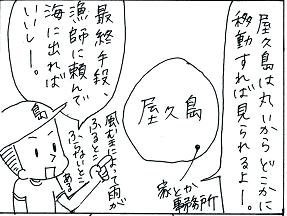 屋久島は丸いからどこかに
移動すれば見られるよー。
屋久島
家とか
事務所
最終手段
漁師に頼んで
海に出れば
いいしー。
島
風むきによって雨が
ふるとこ
ふらないとこ
ある